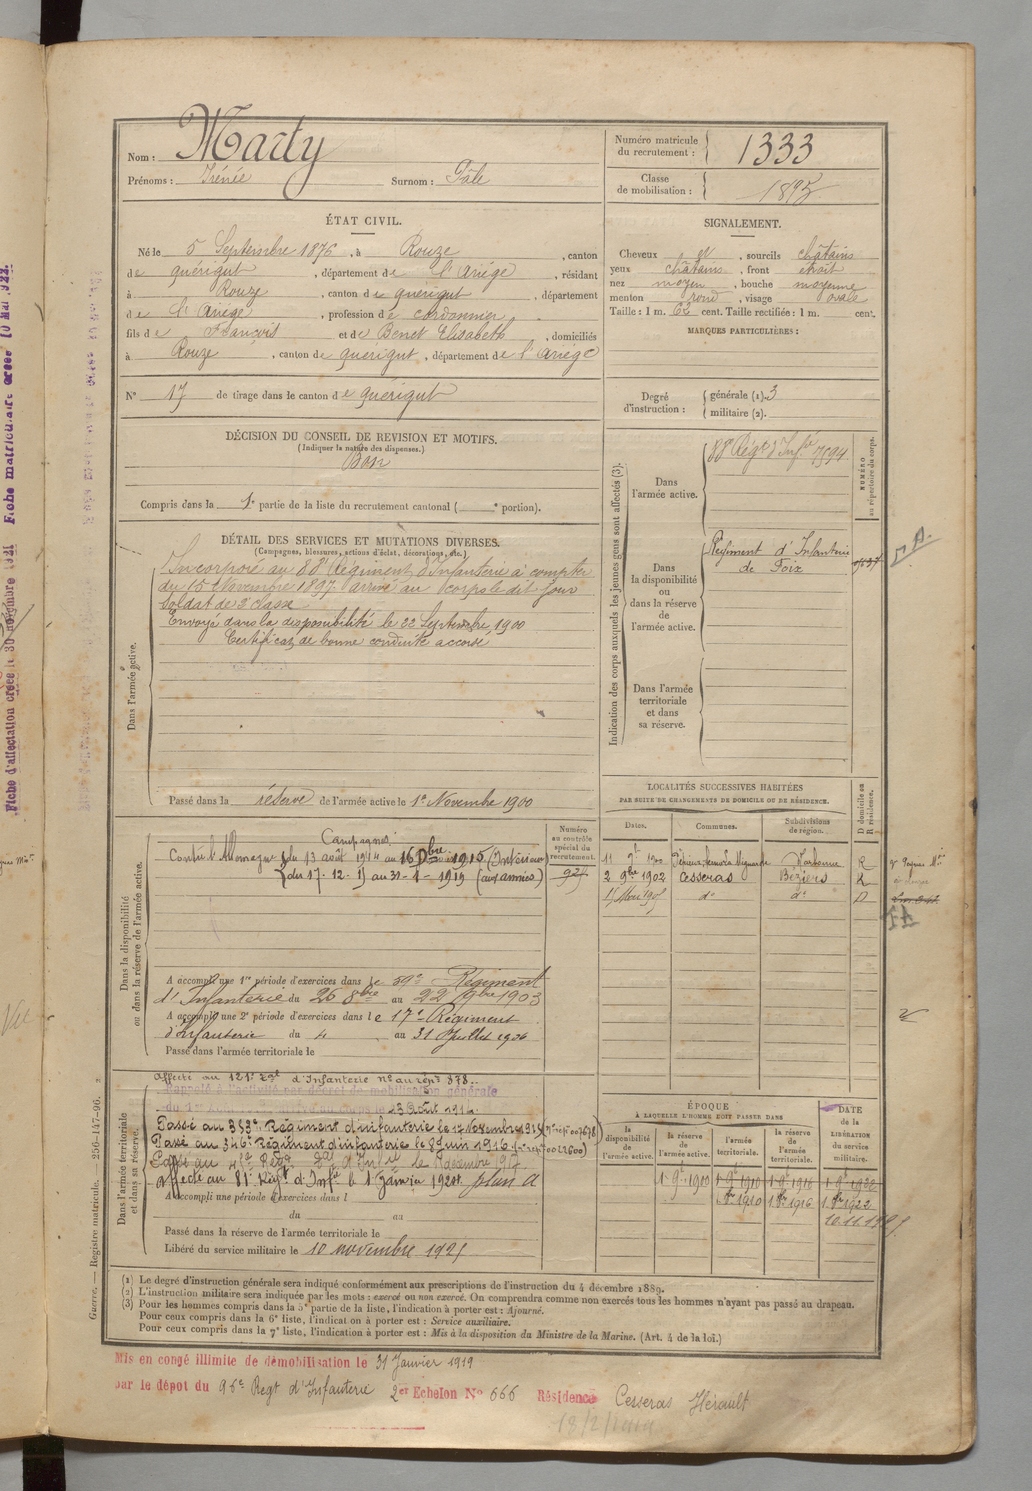 Nom : Marty
Prénoms : Irénée Surnom : Pâle
Numéro matricule du recrutement : 1333
Classe de mobilisation : 1895
ÉTAT CIVIL.
Né le 5 Septembre 1876, à Rouze, canton
de quérigut, département de l'Ariége, résidant
à Rouze, canton de querigut, département
de l'Ariége, profession de cordonnier
fils de François et de Benet Elisabeth, domiciliés
à Rouze, canton de quérigut, département de l'Ariége
N° 17 de tirage dans le canton de quérigut
SIGNALEMENT.
Cheveux , sourcils châtains
yeux châtains, front étroit
nez moyen, bouche moyenne
menton rond, visage ovale
Taille : 1 m. 62 cent. Taille rectifiée : 1 m. cent.
MARQUES PARTICULIÈRES :
Degré d'instruction : générale (1). 3
militaire (2).
DÉCISION DU CONSEIL DE REVISION ET MOTIFS.
(Indiquer la nature des dispenses.)
Bon
Compris dans la 1e partie de la liste du recrutement cantonal ( e portion).
DÉTAIL DES SERVICES ET MUTATIONS DIVERSES.
(Campagnes, blessures, actions d'éclat, décorations, etc.)
Dans l'armée active.
Incorporé au 88e Régiment d'Infanterie à compter
du 15 Novembre 1897 arrivé au corps le dit jour
Soldat de 2e classe
Envoyé dans la disponibilité le 22 Septembre 1900
Certificat de bonne conduite accordé
Passé dans la réserve de l'armée active le 1er Novembre 1900
Indication des corps auxquels les jeunes gens sont affectés (3).
NUMÉRO au répertoire du corps.
Dans l'armée active.
88e Régt d'Infie 7594
Dans la disponibilité ou dans la réserve de l'armée active.
Régiment d'Infanterie
de Foix
Dans l'armée territoriale et dans sa réserve.
Dans la disponibilité ou dans la réserve de l'armée active.
Numéro au contrôle spécial du recrutement.
924
Campagnes
Contre l'Allemagne du 13 août 1914 au 16 Dbre 1915 (Intérieur)
du 17-12-15 au 31-1-1919 (aux armées)
A accompli une 1re période d'exercices dans le 59e Régiment
d'Infanterie du 26 8bre au 22 9bre 1903
A accompli une 2e période d'exercices dans le 17e Régiment
d'Infanterie du 4 au 31 Juillet 1906
Passé dans l'armée territoriale le
LOCALITÉS SUCCESSIVES HABITÉES
PAR SUITE DE CHANGEMENTS DE DOMICILE OU DE RÉSIDENCE.
Dates. Communes. Subdivisions de région. D domicile ou R résidence.
11 9bre 1900 Narbonne R
2 9bre 1902 Cesseras Béziers R
do do D
Dans l'armée territoriale et dans sa réserve.
Affecté au 121e Régt d'Infanterie no au répre 878.
Rappelé à l'activité par décret de mobilisation générale
13 Août 1914.
Passé au 353e Régiment d'infanterie le 17 Novembre 1915
Passé au 346e Régiment d'infanterie le 8 Juin 1916
Passé au d'Infie le décembre 1917
Affecté au 81e Régt d'Infie le 1er Janvier 192 plan A
A accompli une période d'exercices dans l
du au
Passé dans la réserve de l'armée territoriale le
Libéré du service militaire le 10 novembre 1925
ÉPOQUE
À LAQUELLE L'HOMME DOIT PASSER DANS
la disponibilité de l'armée active. la réserve de l'armée active. l'armée territoriale. la réserve de l'armée territoriale. DATE DE LA LIBÉRATION du service militaire.
1 9bre 1900 1 9bre 1910 1 9bre 1916
1 9bre 1910 1 9bre 1916 1 9bre 1922
(1) Le degré d'instruction générale sera indiqué conformément aux prescriptions de l'instruction du 4 décembre 1889.
(2) L'instruction militaire sera indiquée par les mots : exercé ou non exercé. On comprendra comme non exercés tous les hommes n'ayant pas passé au drapeau.
(3) Pour les hommes compris dans la 5e partie de la liste, l'indication à porter est : Ajourné.
Pour ceux compris dans la 6e liste, l'indication à porter est : Service auxiliaire.
Pour ceux compris dans la 7e liste, l'indication à porter est : Mis à la disposition du Ministre de la Marine. (Art. 4 de la loi.)
Guerre. — Registre matricule. — 256-147-96.
Mis en congé illimité de démobilisation le 31 Janvier 1919
par le dépôt du 96e Régt d'Infanterie 2er Echelon No 666 Résidence Cesseras Hérault
Fiche d'affectation créée le 30 novembre 1921 Fiche matriculaire créée 10 Mai 1922.